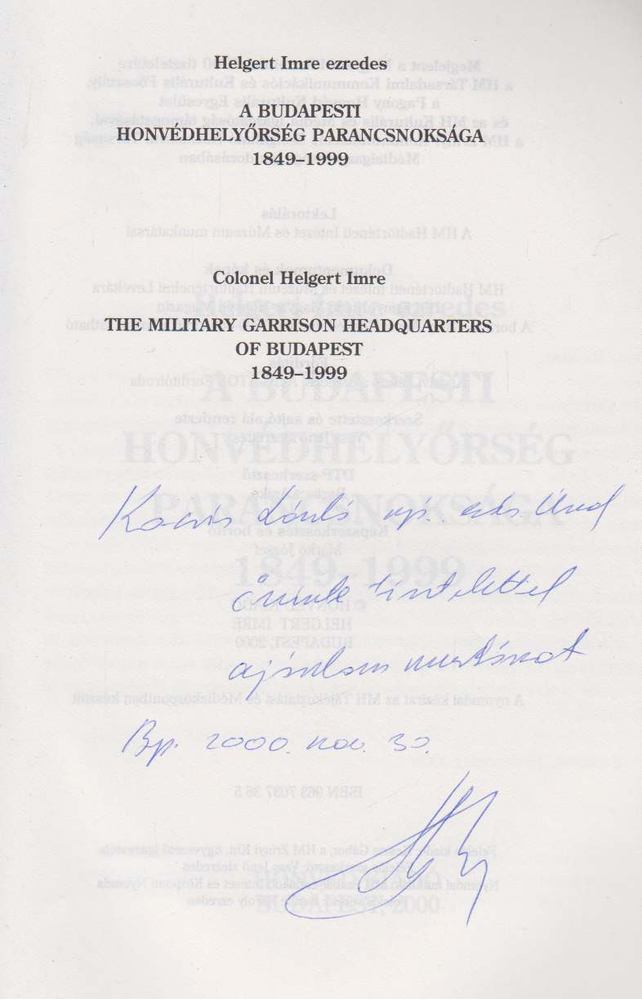 Helgert Imre ezredes
A BUDAPESTI
HONVÉDHELYŐRSÉG PARANCSNOKSÁGA
1849–1999
Colonel Helgert Imre
THE MILITARY GARRISON HEADQUARTERS
OF BUDAPEST
1849–1999
Kocsis László
tisztelettel
ajánlom munkámat
Bp. 2000. nov. 30.